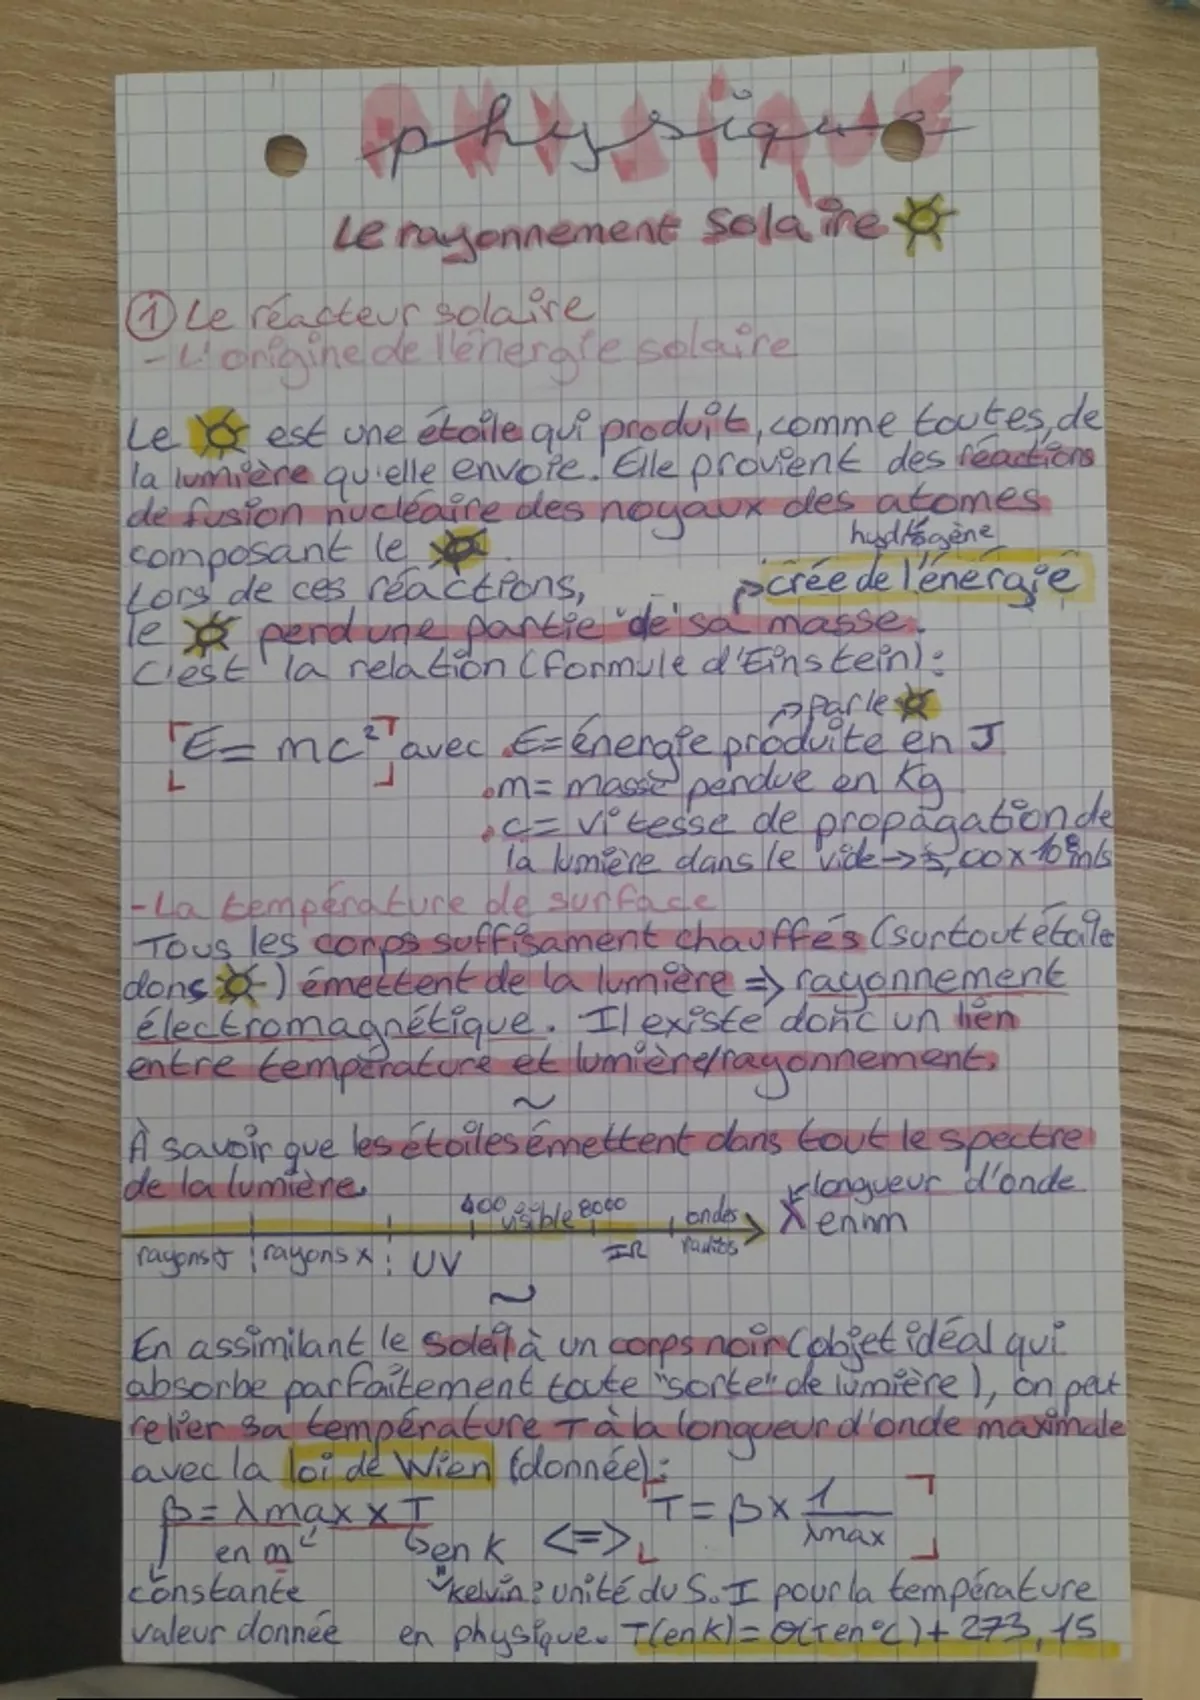 physique
Le rayonnement solaire
① Le réacteur solaire
- L'origine de l'énergie solaire
Le ☀ est une étoile qui produit, comme toutes, de
la lumière qu'elle envoie. Elle provient des réactions
de fusion nucléaire des noyaux des atomes
hydrogène
composant le ☀.
Lors de ces réactions, → crée de l'énergie
le ☀ perd une partie de sa masse.
C'est la relation (formule d'Einstein):
→ par le ☀
E = mc² avec .E= énergie produite en J
.m= masse perdue en Kg
.c= vitesse de propagation de
la lumière dans le vide → 3,00 x 10⁸ m/s
- La température de surface
Tous les corps suffisament chauffés (surtout étoile
dons ☀) émettent de la lumière => rayonnement
électromagnétique. Il existe donc un lien
entre température et lumière/rayonnement.
~
À savoir que les étoiles émettent dans tout le spectre
de la lumière.
longueur d'onde
400 visible 8000 ondes radios λ en nm
rayons γ rayons x UV IR
~
En assimilant le soleil à un corps noir (objet idéal qui
absorbe parfaitement toute "sorte" de lumière), on peut
relier sa température T à la longueur d'onde maximale
avec la loi de Wien (donnée):
β = λmax x T <=> T = β x 1/λmax
en m en K
constante "kelvin: unité du S.I pour la température
valeur donnée en physique. T(en K) = θ(T en °C) + 273,15